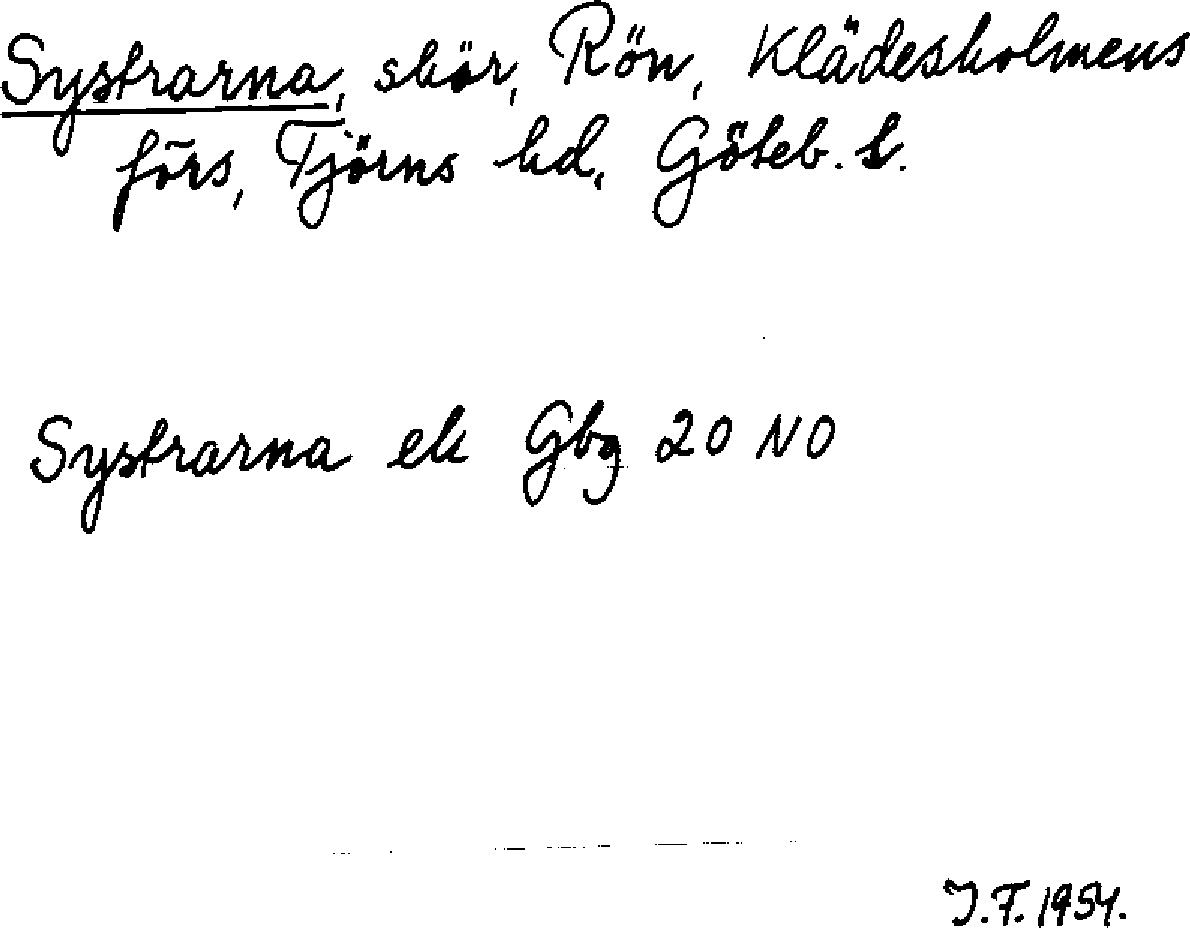 Systrarna, skär, Rön, Klädesholmens
förs, Tjörns hd, Göteb. l.
Systrarna ek Gbg 20 NO
J.F. 1954.